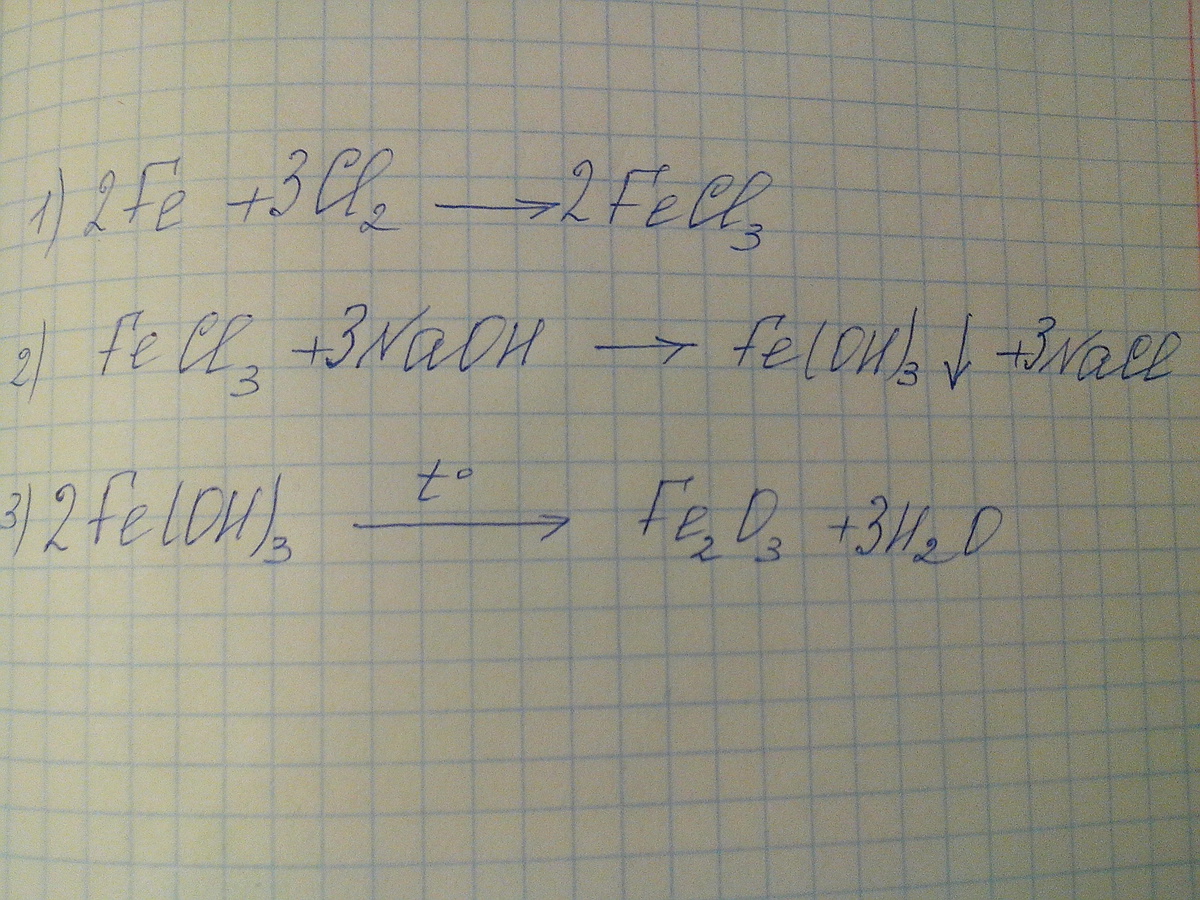 1) 2Fe + 3Cl₂ ⟶ 2FeCl₃
2) FeCl₃ + 3NaOH ⟶ Fe(OH)₃↓ + 3NaCl
3) 2Fe(OH)₃ t° ⟶ Fe₂O₃ + 3H₂O